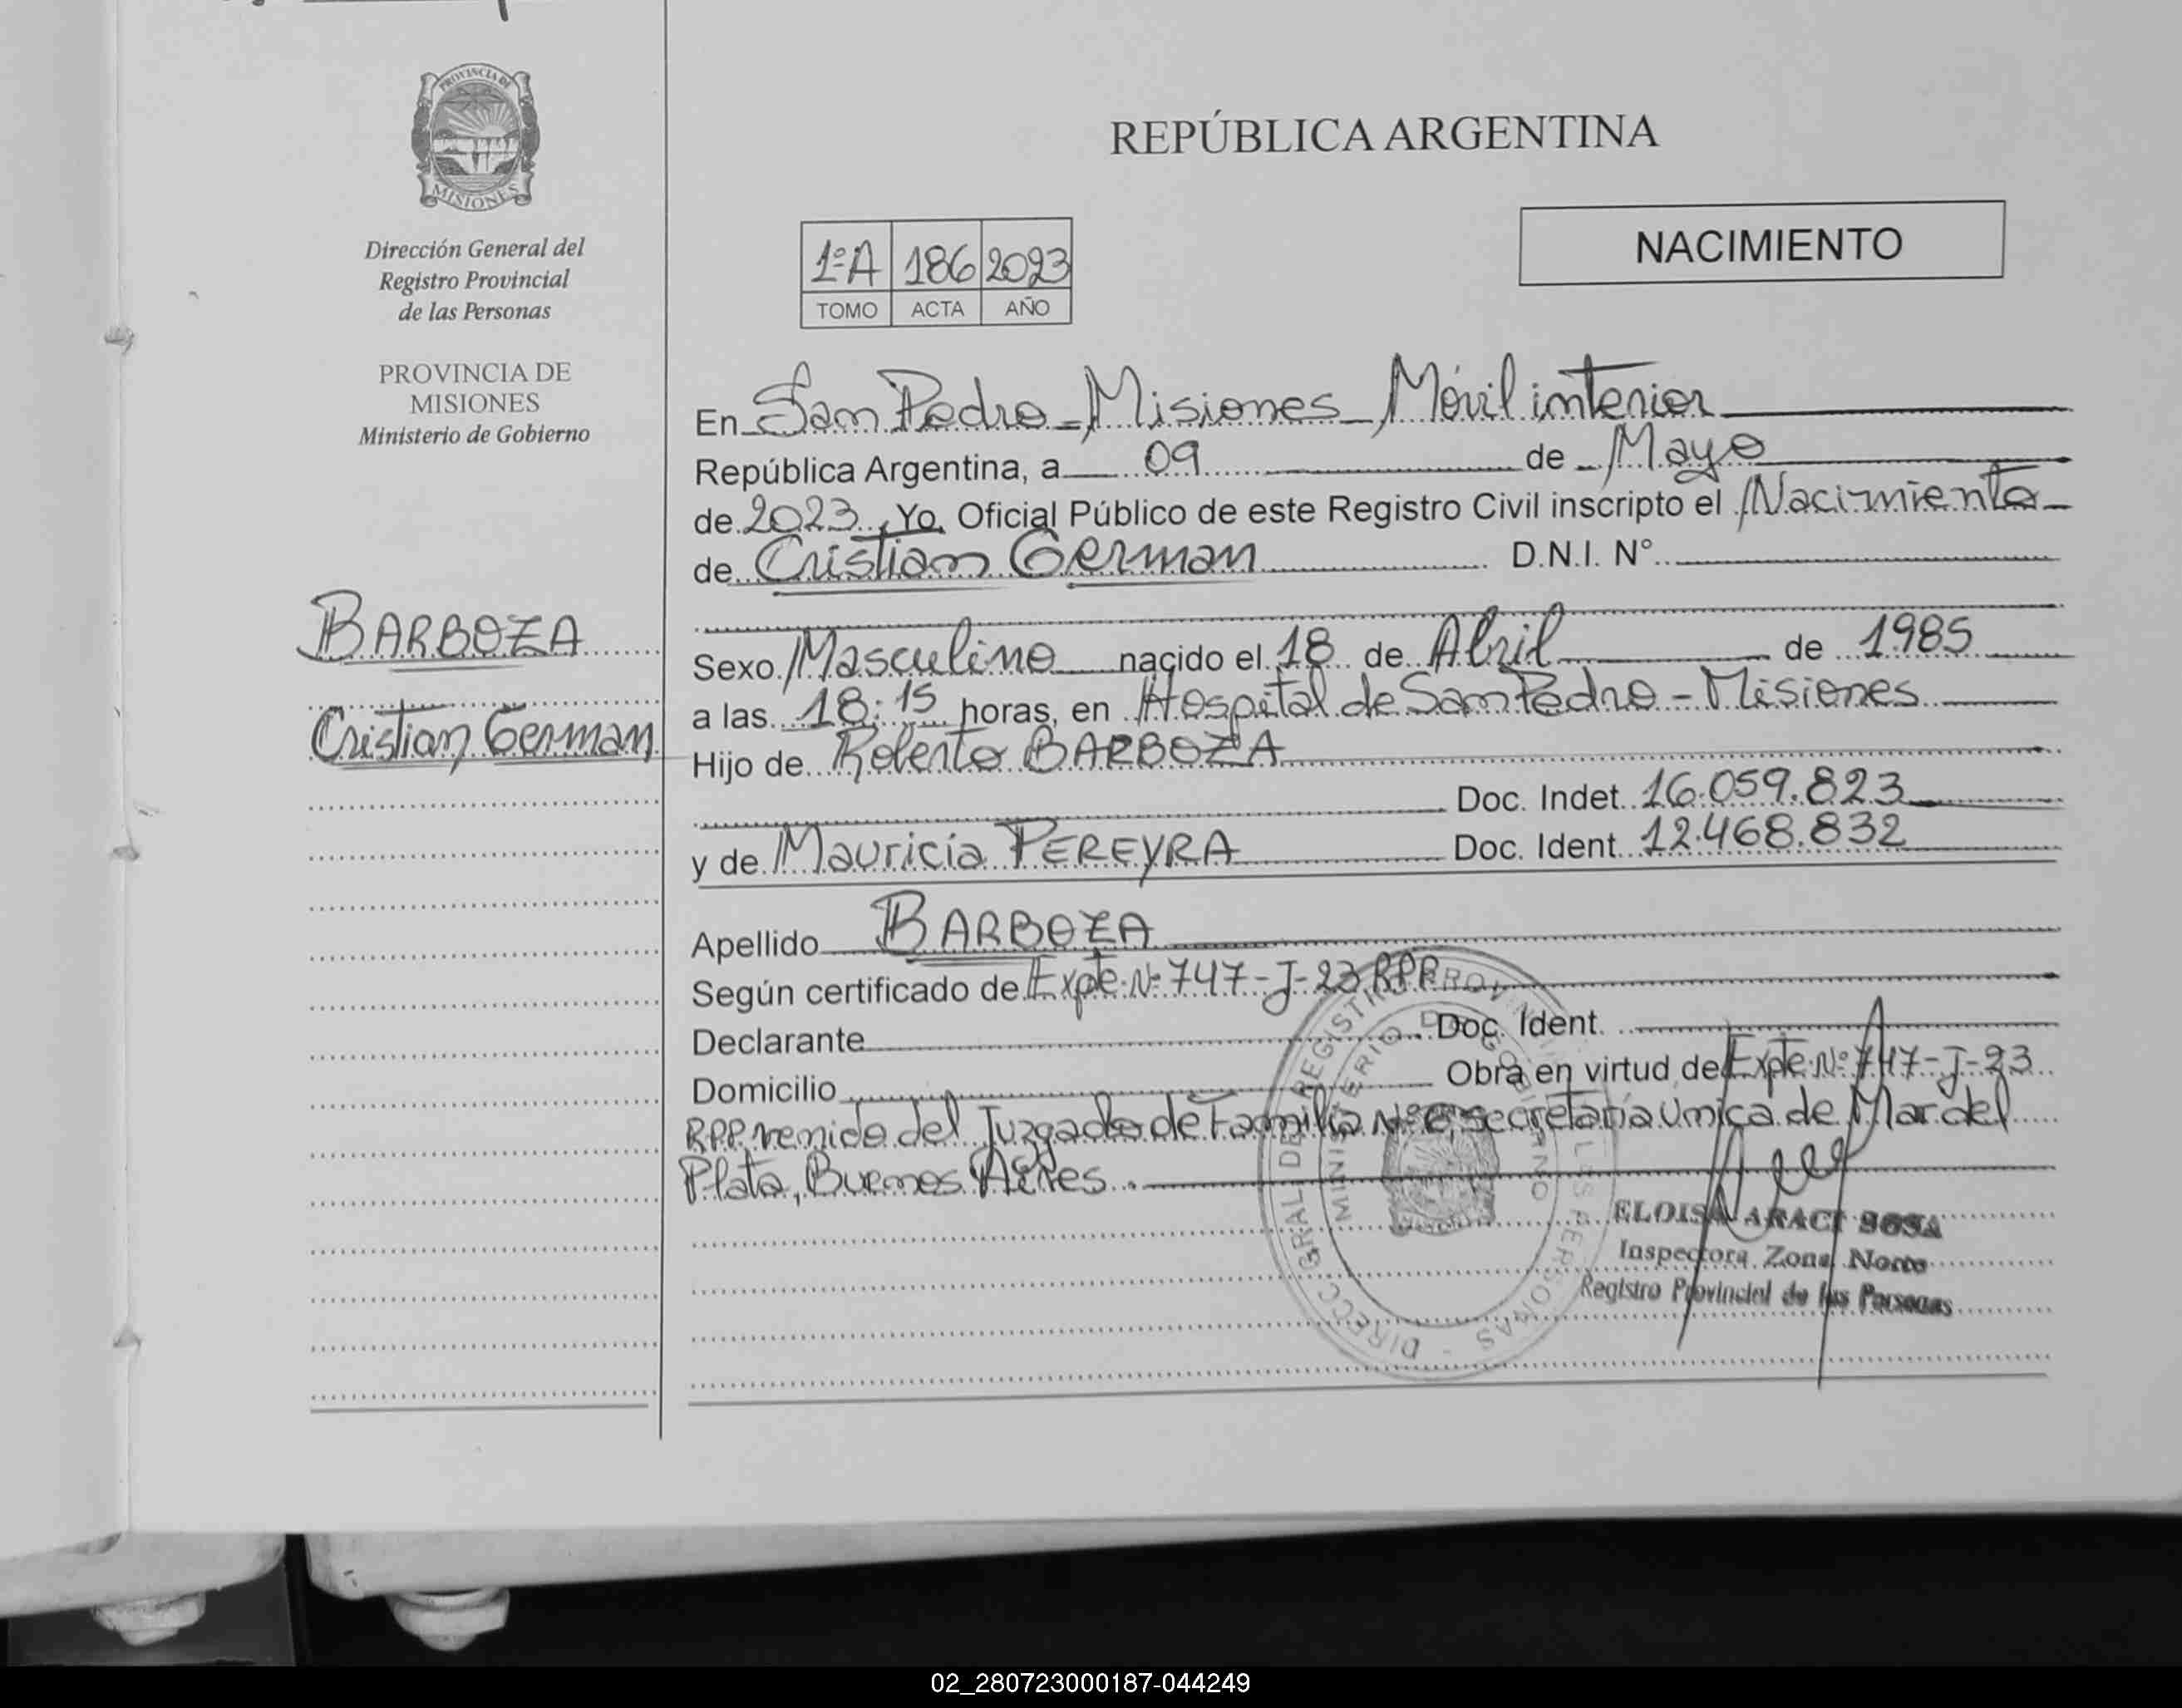 PROVINCIA DE
MISIONES
Dirección General del
Registro Provincial
de las Personas
PROVINCIA DE
MISIONES
Ministerio de Gobierno
BARBOZA
Cristian German
REPÚBLICA ARGENTINA
NACIMIENTO
1ºA 186 2023
TOMO ACTA AÑO
En San Pedro - Misiones - Móvil interior
República Argentina, a 09 de Mayo
de 2023, Yo, Oficial Público de este Registro Civil inscripto el Nacimiento
de Cristian German D.N.I. N°
Sexo Masculino nacido el 18 de Abril de 1985
a las 18:15 horas, en Hospital de San Pedro - Misiones
Hijo de Roberto BARBOZA
Doc. Indet. 16.059.823
y de Mauricia PEREYRA Doc. Ident. 12.468.832
Apellido BARBOZA
Según certificado de Expte Nº 747-J-23 RPP
Declarante Doc. Ident.
Domicilio Obra en virtud de Expte Nº 747-J-23
RPP venido del Juzgado de Familia Nº secretaría única de Mar del
Plata, Buenos Aires.
DIRECC GRAL DEL REGISTRO PROVINCIAL DE LAS PERSONAS
MINISTERIO DE GOBIERNO
ELOISA ARACI SOSA
Inspectora Zona Norte
Registro Provincial de las Personas
02_280723000187-044249